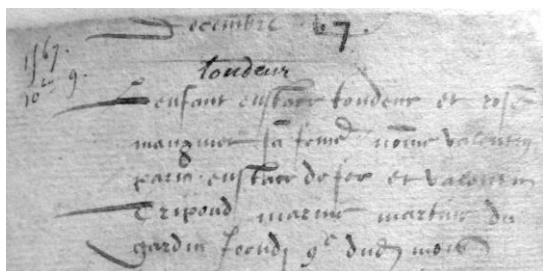 Decembre 67.
1567.
10bre 9.
tondeur
Lenfant eustace tondeur et rose
maugnier sa feme nome valentin
parin eustace defer et valentin
Tripond marine martine du
gardin feudi 9e dud mois